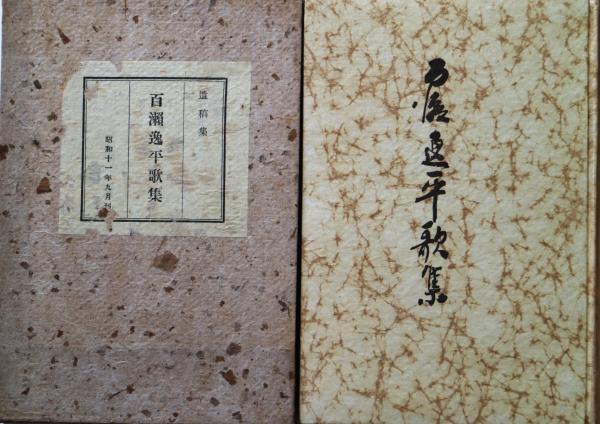 遺稿集
百瀬逸平歌集
昭和十一年九月刊
百瀬逸平歌集